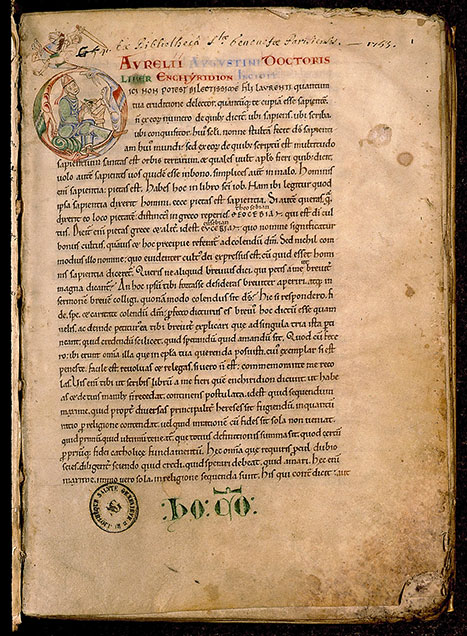 Ex Bibliotheca Stæ Genovefæ Parisiensis. — 1753.
AVRELII AVGVSTINI DOCTORIS
LIBER ENCHYRIDION INCIPIT
ICI NON POTEST DILECTISSIME FILI LAVRENTI quantum
tua eruditione delector, quantūq; te cupiā esse sapientē.
n̄ ex eorū numero de quib; dicit̄. ubi sapiens. ubi scriba
ubi conquisitor hui' seli. nonne stultā fecit d̄s sapienti
am hui' mundi. sed ex eo℞ de quib; scriptū est multitudo
sapientium sanitas est orbis terrarum. & quales uult apl's fieri quib; dicit.
uolo autē sapientes uos quidē esse inbono. simplices aūt in malo. Hominis
enī sapientia. pietas ē. Habes hoc in libro sc̄i iob. Nam ibi legitur quod
ipsa sapientia dixerit homini. ecce pietas est sapientia. Si autē queras q̄
dixerit eo loco pietatē. distinctī in greco reperies
theosebian
ΘEOCEBIAN. qui est dī cul
tus. Dicit̄ enī pietas grece & alit̄. idest
eusebian
EYCEBIA. quo nomine significatur
bonus cultus. quāuis & hoc precipue referat̄ ad colendū dm̄. Sed nichil com
modius illo nomine. quo euidenter cultus dei expressus est. cū quid esset homi
nis sapientia diceret̄. Queris ne aliquid breuius dici. qui petis a me breuit̄
magna dicant̄. An hoc ipsū tibi fortasse desideras breuiter aperiri. atq; in
sermonē breuē colligi. quonā modo colendus sit d̄s. Hic si respondero. fi
de. spe. & caritate colendū dm̄. profecto dicturus es breui' hoc dictū esse quam
uelis. ac deinde petitur' ea tibi breuit̄ explicari que ad singula tria ista pti
neant. quid credendū scilicet. quid sperandū. quid amandū sit. Quod cū fece
ro. ibi erunt omīa illa que in epl'a tua querenda posuisti. cui' exemplar si est
penes te. facile est. ut euoluas ea & relegas. si uero n̄ est. commemorante me reco
las. Uis enī tibi ut scribis librū a me fieri quē enchiridion dicunt. ut habe
as & de tuis manib; n̄ recedat. continens postulata. idest quid sequendum
maxime. quid propt̄ diuersas principalit̄ hereses sit fugiendū. inquantū
ratio p religione contendat. uel quid inratione cū fides sit sola non ueniat.
quid primū. quid ultimū teneat̄. que totius definitionis summa sit. quod certū
ppriūq; fidei catholice fundamentū. Hec omīa que requiris pcul dubio
scies. diligent̄ sciendo quid credi. quid sperari debeat. quid amari. Hec enī
maxime. immo uero sola. in religione sequenda sunt. His qui contradicit. aut